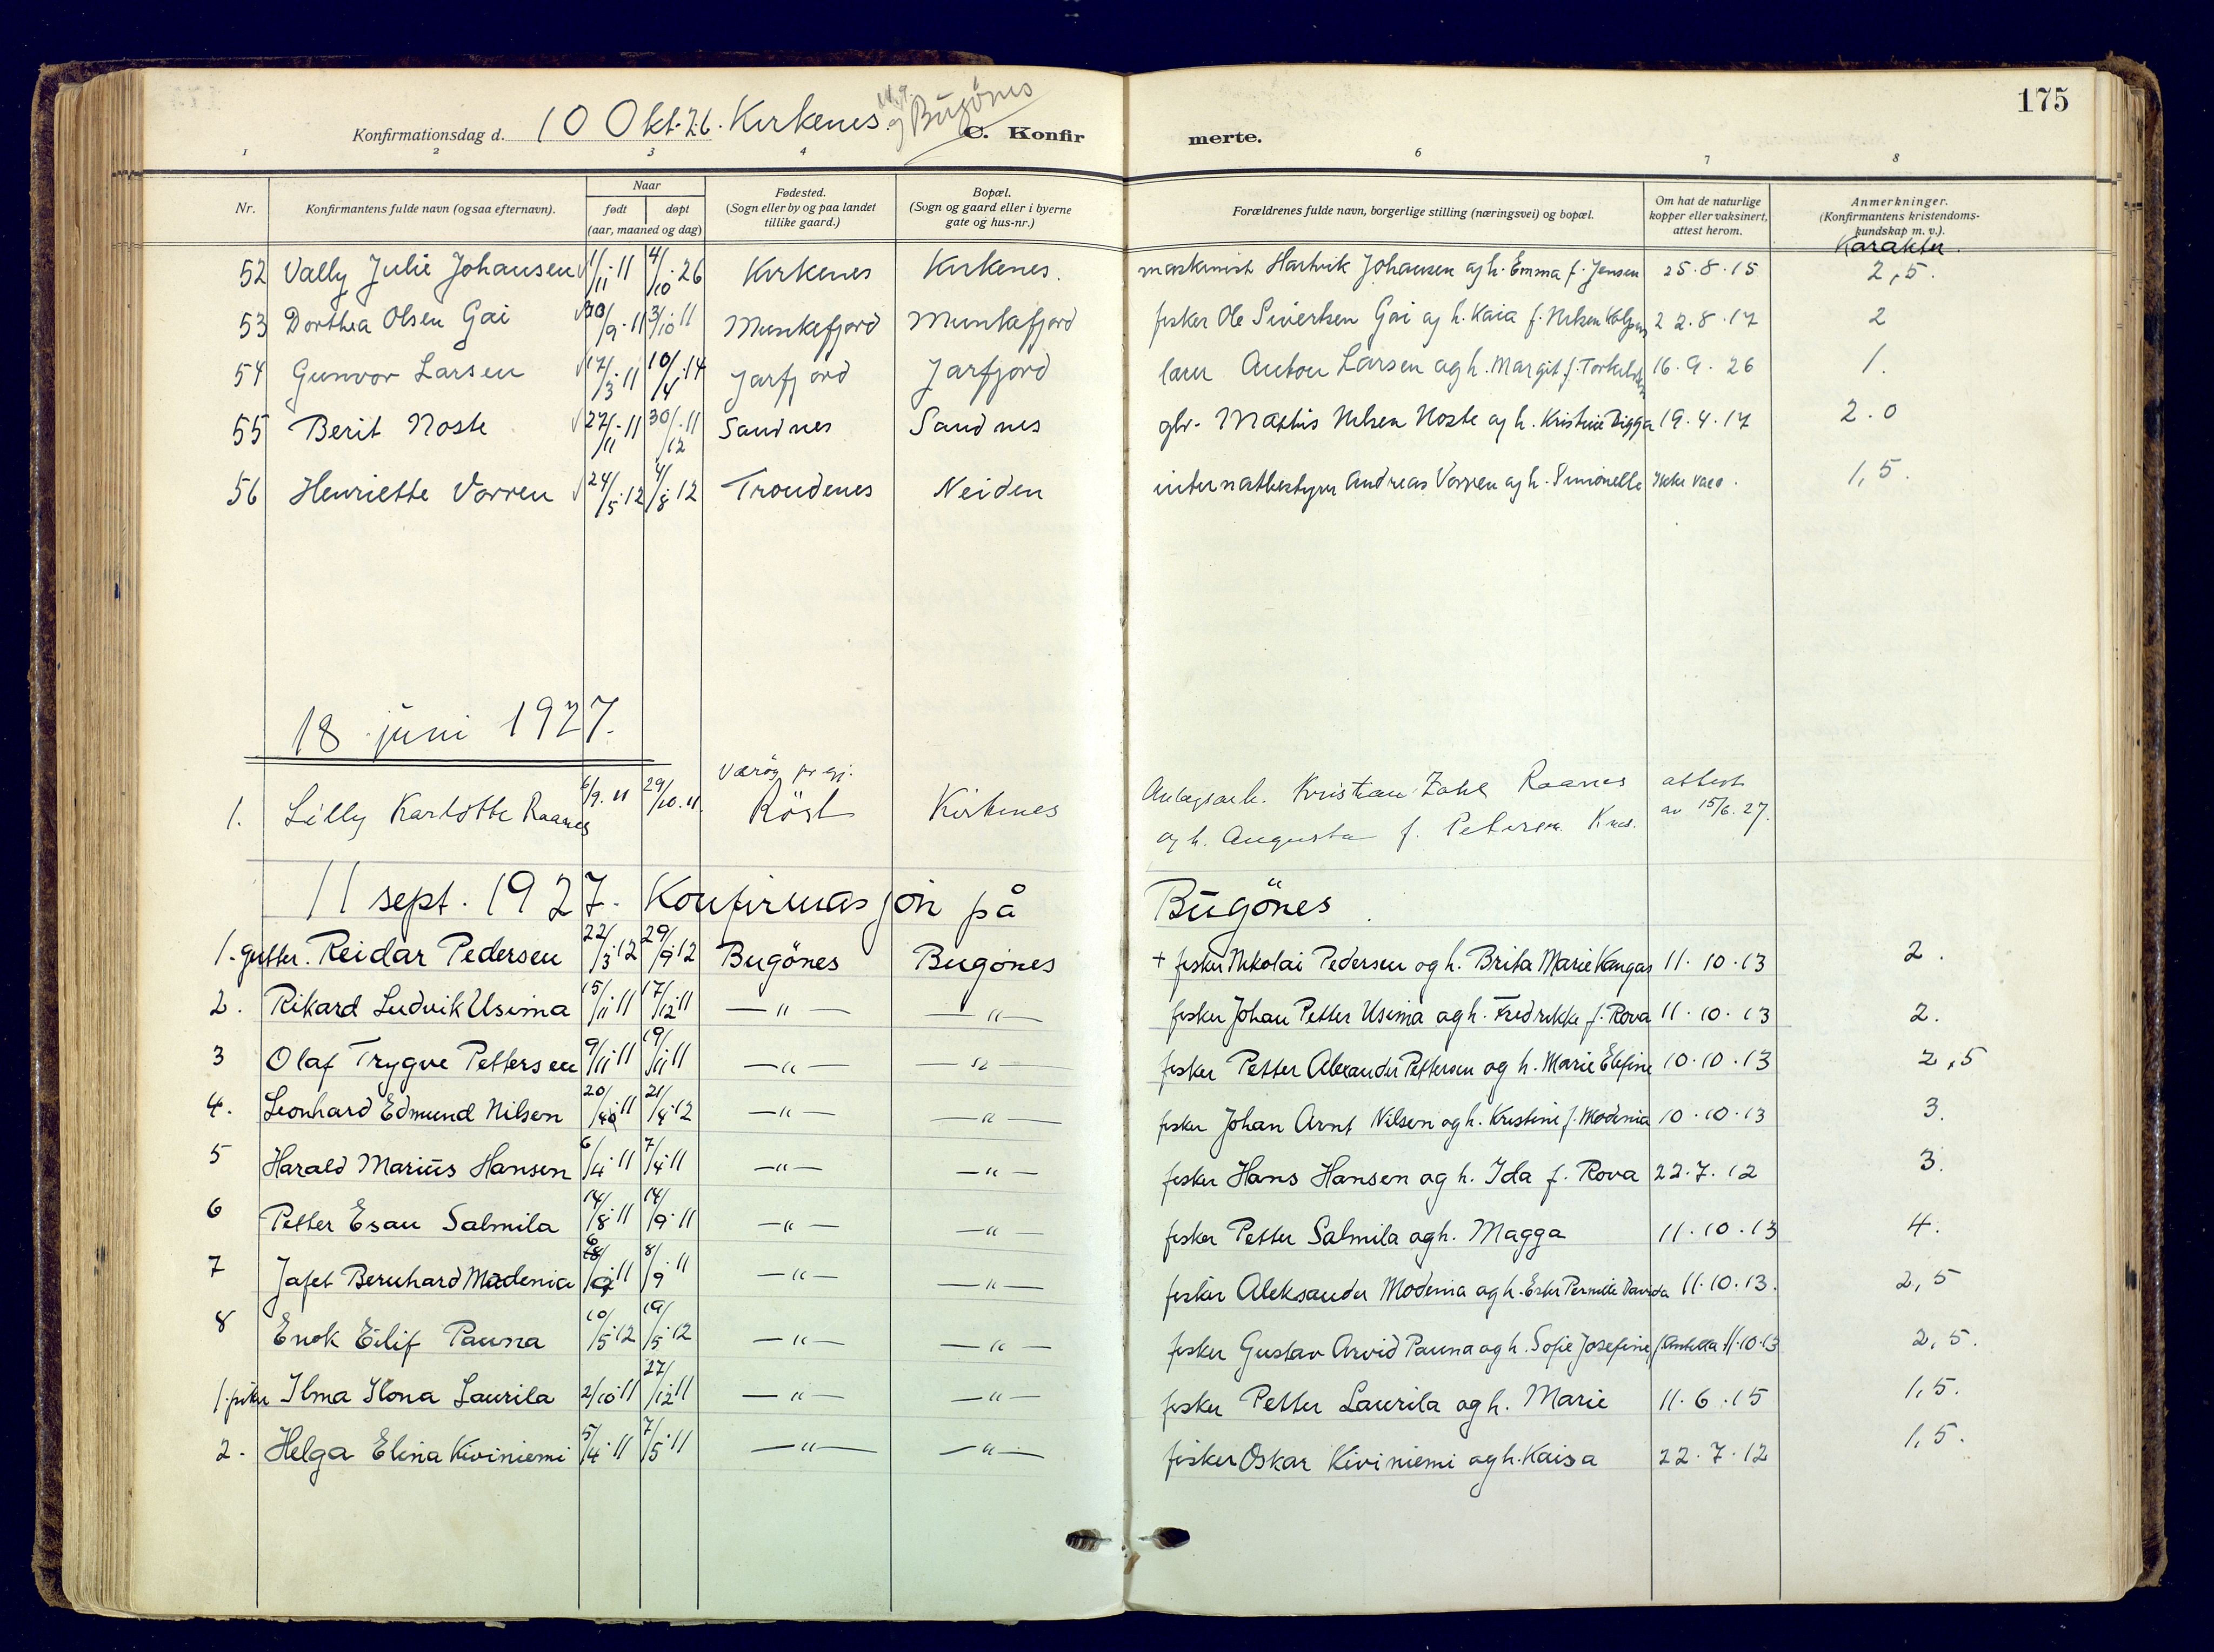 175
Konfirmationsdag d. 10 Okt. 26. Kirkenes og Bugönes
C. Konfirmerte.
1 2 3 4 6 7 8
Nr. Konfirmantens fulde navn (ogsaa efternavn). Naar født døpt (aar, maaned og dag) Fødested. (Sogn eller by og paa landet tillike gaard.) Bopæl. (Sogn og gaard eller i byerne gate og hus-nr.) Forældrenes fulde navn, borgerlige stilling (næringsvei) og bopæl. Om hat de naturlige kopper eller vaksinert, attest herom. Anmerkninger. (Konfirmantens kristendomskundskap m. v.).
Karakter.
52 Vally Julie Johansen 1/11.11 4/10.26 Kirkenes Kirkenes. maskinist Hartvik Johansen og h. Emma f. Jensen 25.8.15 2,5.
53 Dorthea Olsen Gai 30/9.11 3/10 11 Munkefjord Munkefjord fisker Ole Sivertsen Gai og h. Kaia f. Nilsen 22.8.17 2
54 Gunvor Larsen 17/3.11 10/4.14 Jarfjord Jarfjord lærer Anton Larsen og h. Margit f. 16.9.26 1.
55 Berit Noste 27/11.11 30/12.11 Sandnes Sandnes gbr. Mathis Nilsen Noste og h. Kristine Digga 19.4.17 2.0
56 Henriette Vorren 24/5.12 4/8 12 Trondenes Neiden internatbestyrer Andreas Vorren og h. Simonelle Ikke vacc. 1,5.
18 juni 1927.
1. Lilly Karlotte Raanes 6/9.11 29/10.11. Værøy pr.gj. Röst Kirkenes Anlegsarb. Kristian Zahl Raanes attest
og h. Augusta f. Petersen Knes. av 15/6.27.
11 sept. 1927. Konfirmasjon på Bugönes.
1. gutter. Reidar Pedersen 22/3.12 29/9.12 Bugönes Bugönes + fisker Nikolai Pedersen og h. Brita Marie Kangas 11.10.13 2.
2. Rikard Ludvik Usima 15/11 11 17/12 11 — " — — " — fisker Johan Petter Usima og h. Fredrikke f. Rova 11.10.13 2.
3 Olaf Trygve Pettersen 9/11 11 19/11 11 — " — — " — fisker Petter Alexander Pettersen og h. Marie Elefine 10.10.13 2,5
4. Leonhard Edmund Nilsen 20/10.11 21/4.12 — " — — " — fisker Johan Arnt Nilsen og h. Kristine f. Modenia 10.10.13 3.
5 Harald Marius Hansen 6/4.11 7/4.11 — " — — " — fisker Hans Hansen og h. Ida f. Rova 22.7.12 3.
6 Petter Esau Salmila 14/8.11 14/9.11 — " — — " — fisker Petter Salmila og h. Magga 11.10.13 4.
7 Jafet Bernhard Modenia 11 8/9.11 — " — — " — fisker Aleksander Modenia og h. Ester Pernille Davida 11.10.13. 2,5
8 Enok Eilif Pauna 10/5.12 19/5.12 — " — — " — fisker Gustav Arvid Pauna og h. Sofie Josefine f. 11.10.13 2,5.
1. piker Ilma Ilona Laurila 2/10.11 27/12 11 — " — — " — fisker Petter Laurila og h. Marie 11.6.15 1,5.
2. Helga Elina Kiviniemi 5/4.11 7/5.11 — " — — " — fisker Oskar Kiviniemi og h. Kaisa 22.7.12 1,5.